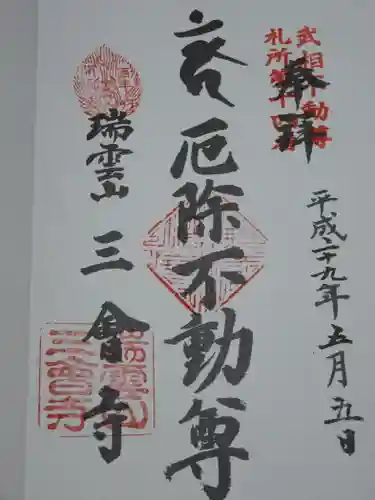 武相不動尊
札所第
奉拝
平成二十九年五月五日
厄除不動尊
瑞雲山
三會寺
瑞雲山
三會寺